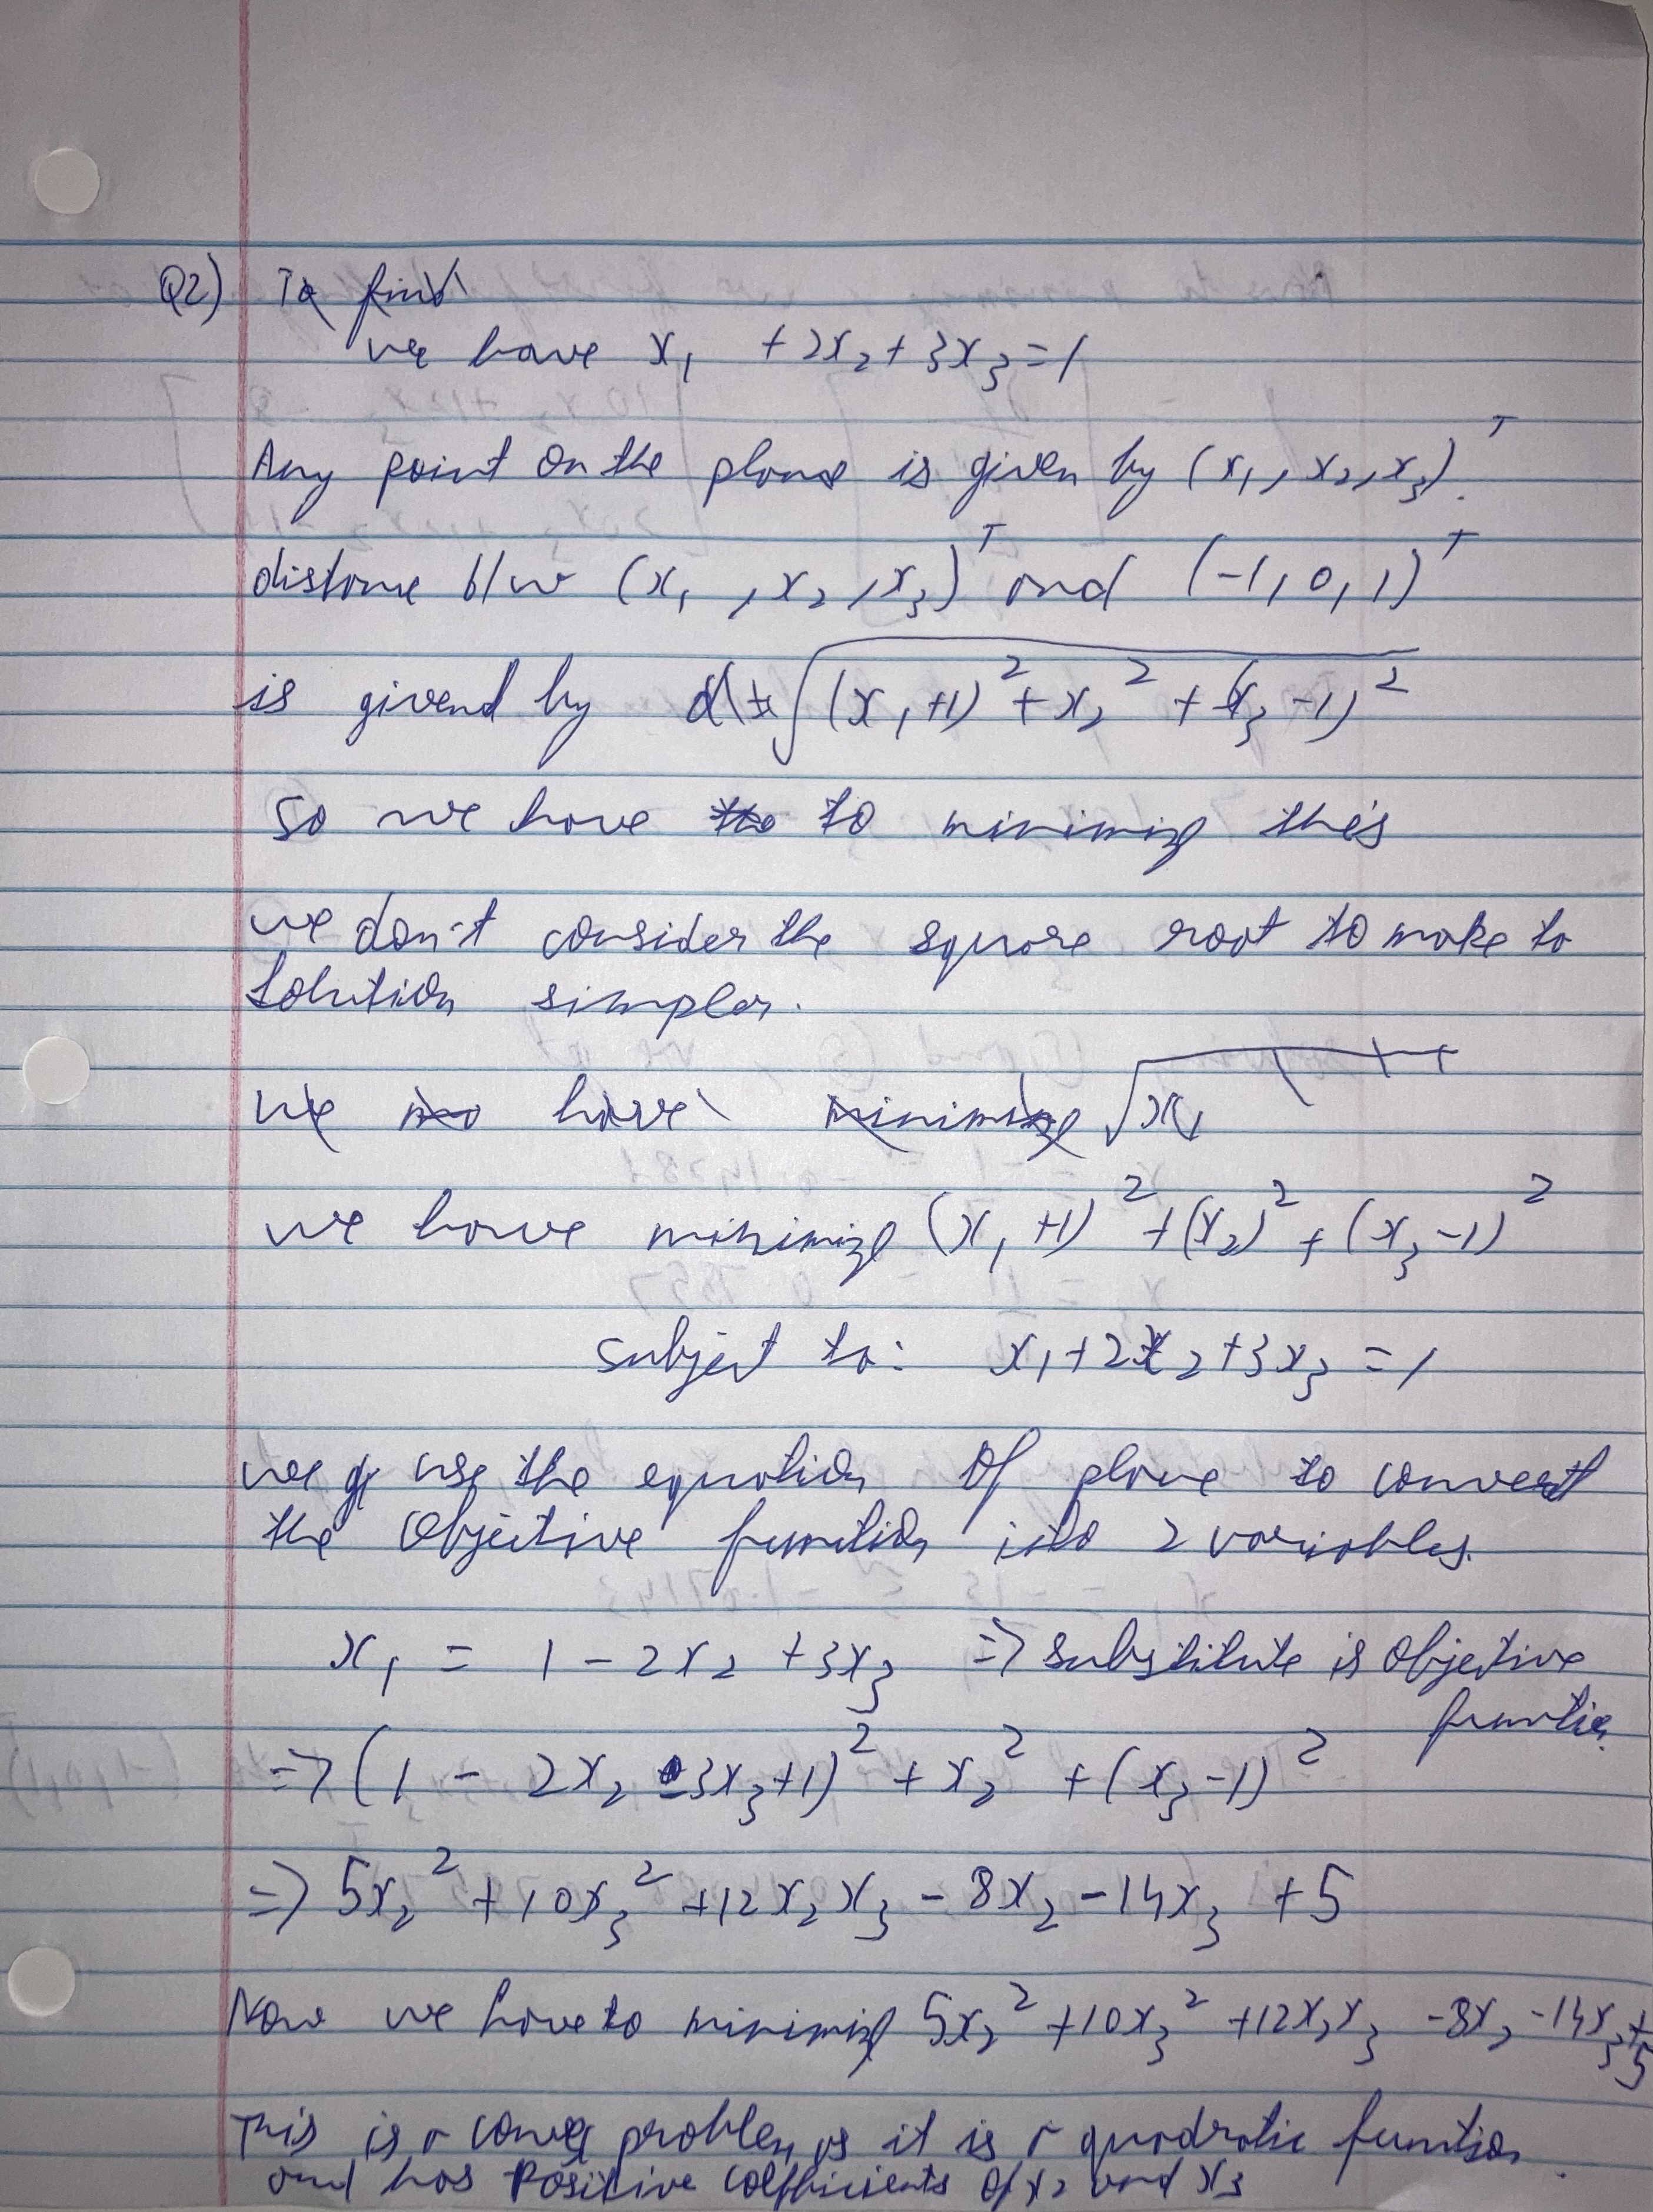 Q2) To find
we have x₁ + 2x₂ + 3x₃ = 1
Any point on the plane is given by (x₁, x₂, x₃)ᵀ.
distance b/w (x₁, x₂, x₃)ᵀ and (-1, 0, 1)ᵀ
is givend by d = √((x₁+1)² + x₂² + (x₃-1)²)
so we have to minimize this
we don't consider the square root to make to
solution simpler.
We have minimize √x₁
we have minimize (x₁+1)² + (x₂)² + (x₃-1)²
subject to: x₁ + 2x₂ + 3x₃ = 1
we use the equation of plane to convert
the objective function into 2 variables.
x₁ = 1 - 2x₂ + 3x₃ => substitute is objective
function
=> (1 - 2x₂ - 3x₃ + 1)² + x₂² + (x₃-1)²
=> 5x₂² + 10x₃² + 12x₂x₃ - 8x₂ - 14x₃ + 5
Now we have to minimize 5x₂² + 10x₃² + 12x₂x₃ - 8x₂ - 14x₃ + 5
This is a convex problem, as it is a quadratic function.
and has positive coefficients of x₂ and x₃